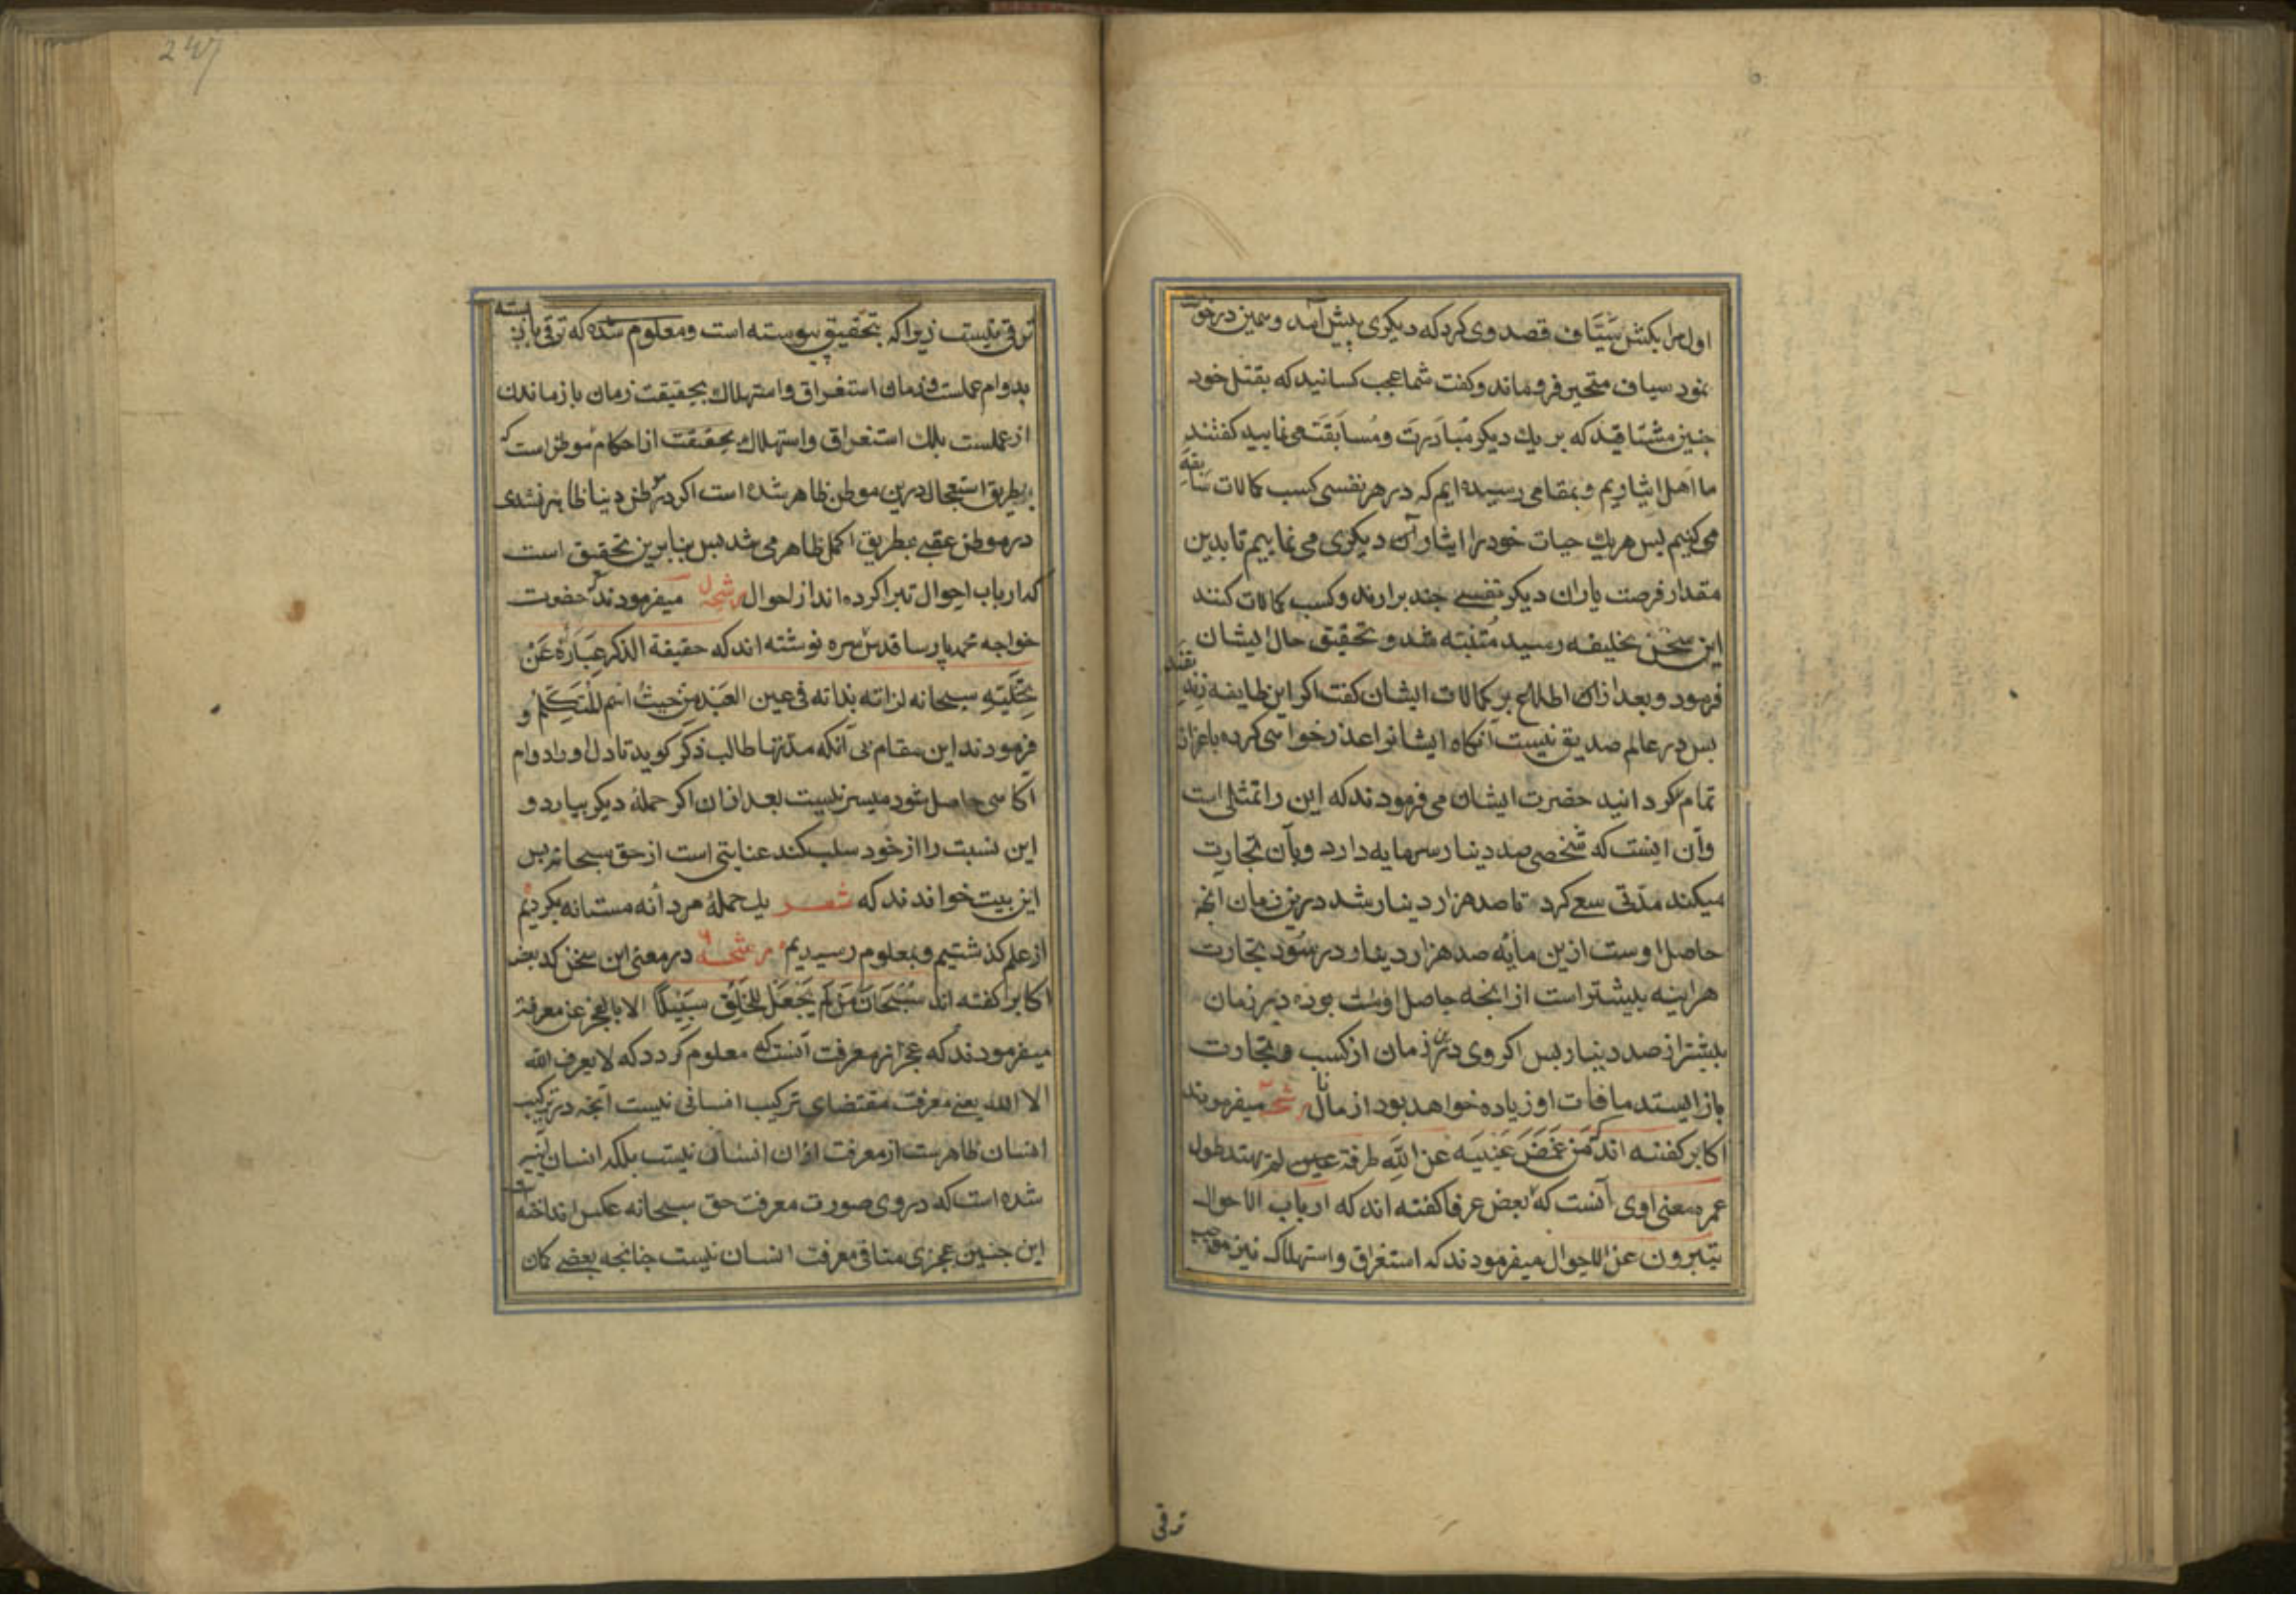 اول مرا بکش سیّاف قصد وی کرد که دیکری پیش آمد و همین درخواست
نمود سیاف متحیر فرو ماند و کفت شما عجب کسانید که بقتل خود
چنین مشتاقید که بر یك دیکر مُبادَرَت و مُسابقَت می نمایید کفتند
ما اهل ایثاریم و بمقامی رسیده ایم که در هر نفسی کسب کمالات سابقه
می کنیم پس هر یك حیات خود را ایثار آن دیکری می نماییم تا بدین
مقدار فرصت یاران دیکر نفسی چند برارند و کسب کمالات کنند
این سخن بخلیفه رسید مُتنبّه شد و تحقیق حال ایشان
فرمود و بعد از ان اطلاع بر کمالات ایشان کفت اکر این طایفه زندیقند
پس در عالم صدیق نیست آنکاه ایشانرا عذر خواهی کرده باعزاز
تمام کردانید حضرت ایشان می فرمودند که این را تمثلی است
وآن اینست که شخصی صد دینار سرمایه دارد وبآن تجارت
میکند مدّتی سعی کرد تا صد هزار دینار شد درین زمان انچه
حاصل اوست ازین مایه صد هزار دینار در سود تجارت
هراینه بیشتر است از انچه حاصل اوست بوده در زمان
بیشتر از صد دینار پس اکر وی درین زمان از کسب و تجارت
باز ایستد مافات او زیاده خواهد بود از مانال رشحه میفرمودند
اکابر کفته اند که مَن غَمَّضَ عَینَیه عَن اللّهِ طرفة عین لم یهتد طول
عمره معنی اوی آنست که بعض عرفا کفته اند که ارباب الاحوال
یتبرون عن الاحوال میفرمودند که استغراق و استهلاك نیز موجب
ترقی
ترقی نیست زیرا که بتحقیق پیوسته است و معلوم شده که ترقی باز بسته
بدوام عملست و زمان استغراق و استهلاك بحقیقت زمان باز ماندن
از عملست بلك استغراق و استهلاك بحقیقت از احکام موطن است که
بطریق استعجال درین موطن ظاهر شده است اکر در موطن دنیا ظاهر نشدی
در موطن عقبی بطریق اکمل ظاهر می شد پس بنابرین تحقیق است
که ارباب احوال تبرا کرده اند از احوال رشحه میفرمودند که حضرت
خواجه محمد پارسا قدس سره نوشته اند که حقیقة الذکر عِبَارَةٌ عَنْ
تَجَلّیَهِ سبحانه لذاته بذاته فی عین العَبْد مِن حیثُ اسم المُتکلّم و
فرمودند این مقام بی آنکه مدّتها طالب ذکر کوید تا دل اورا دوام
اکاهی حاصل شود میسر نیست بعد ازان اکر حملهٔ دیکر بیارد و
این نسبت را از خود سلب کند عنایتی است از حق سبحانه پس
این بیت خواندند که شعر یك حملهٔ مردانه مستانه بکردیم
از علم کذشتیم و بمعلوم رسیدیم رشحه در معنی این سخن که بعض
اکابر کفته اند سُبْحَانَ مَن لَم یَجْعَل لِلخَلقِ سَبِیلًا الا بالعجز عن معرفته
میفرمودند که عجز از معرفت آنست که معلوم کردد که لا یعرف الله
الا الله یعنی معرفت مقتضای ترکیب انسانی نیست آنچه در ترکیب
انسان ظاهرست از معرفت ازان انسان نیست بلکه انسان آینه
شده است که در وی صورت معرفت حق سبحانه عکس انداخته است
این چنین عجزی منافی معرفت انسان نیست چنانچه بعضی کمان